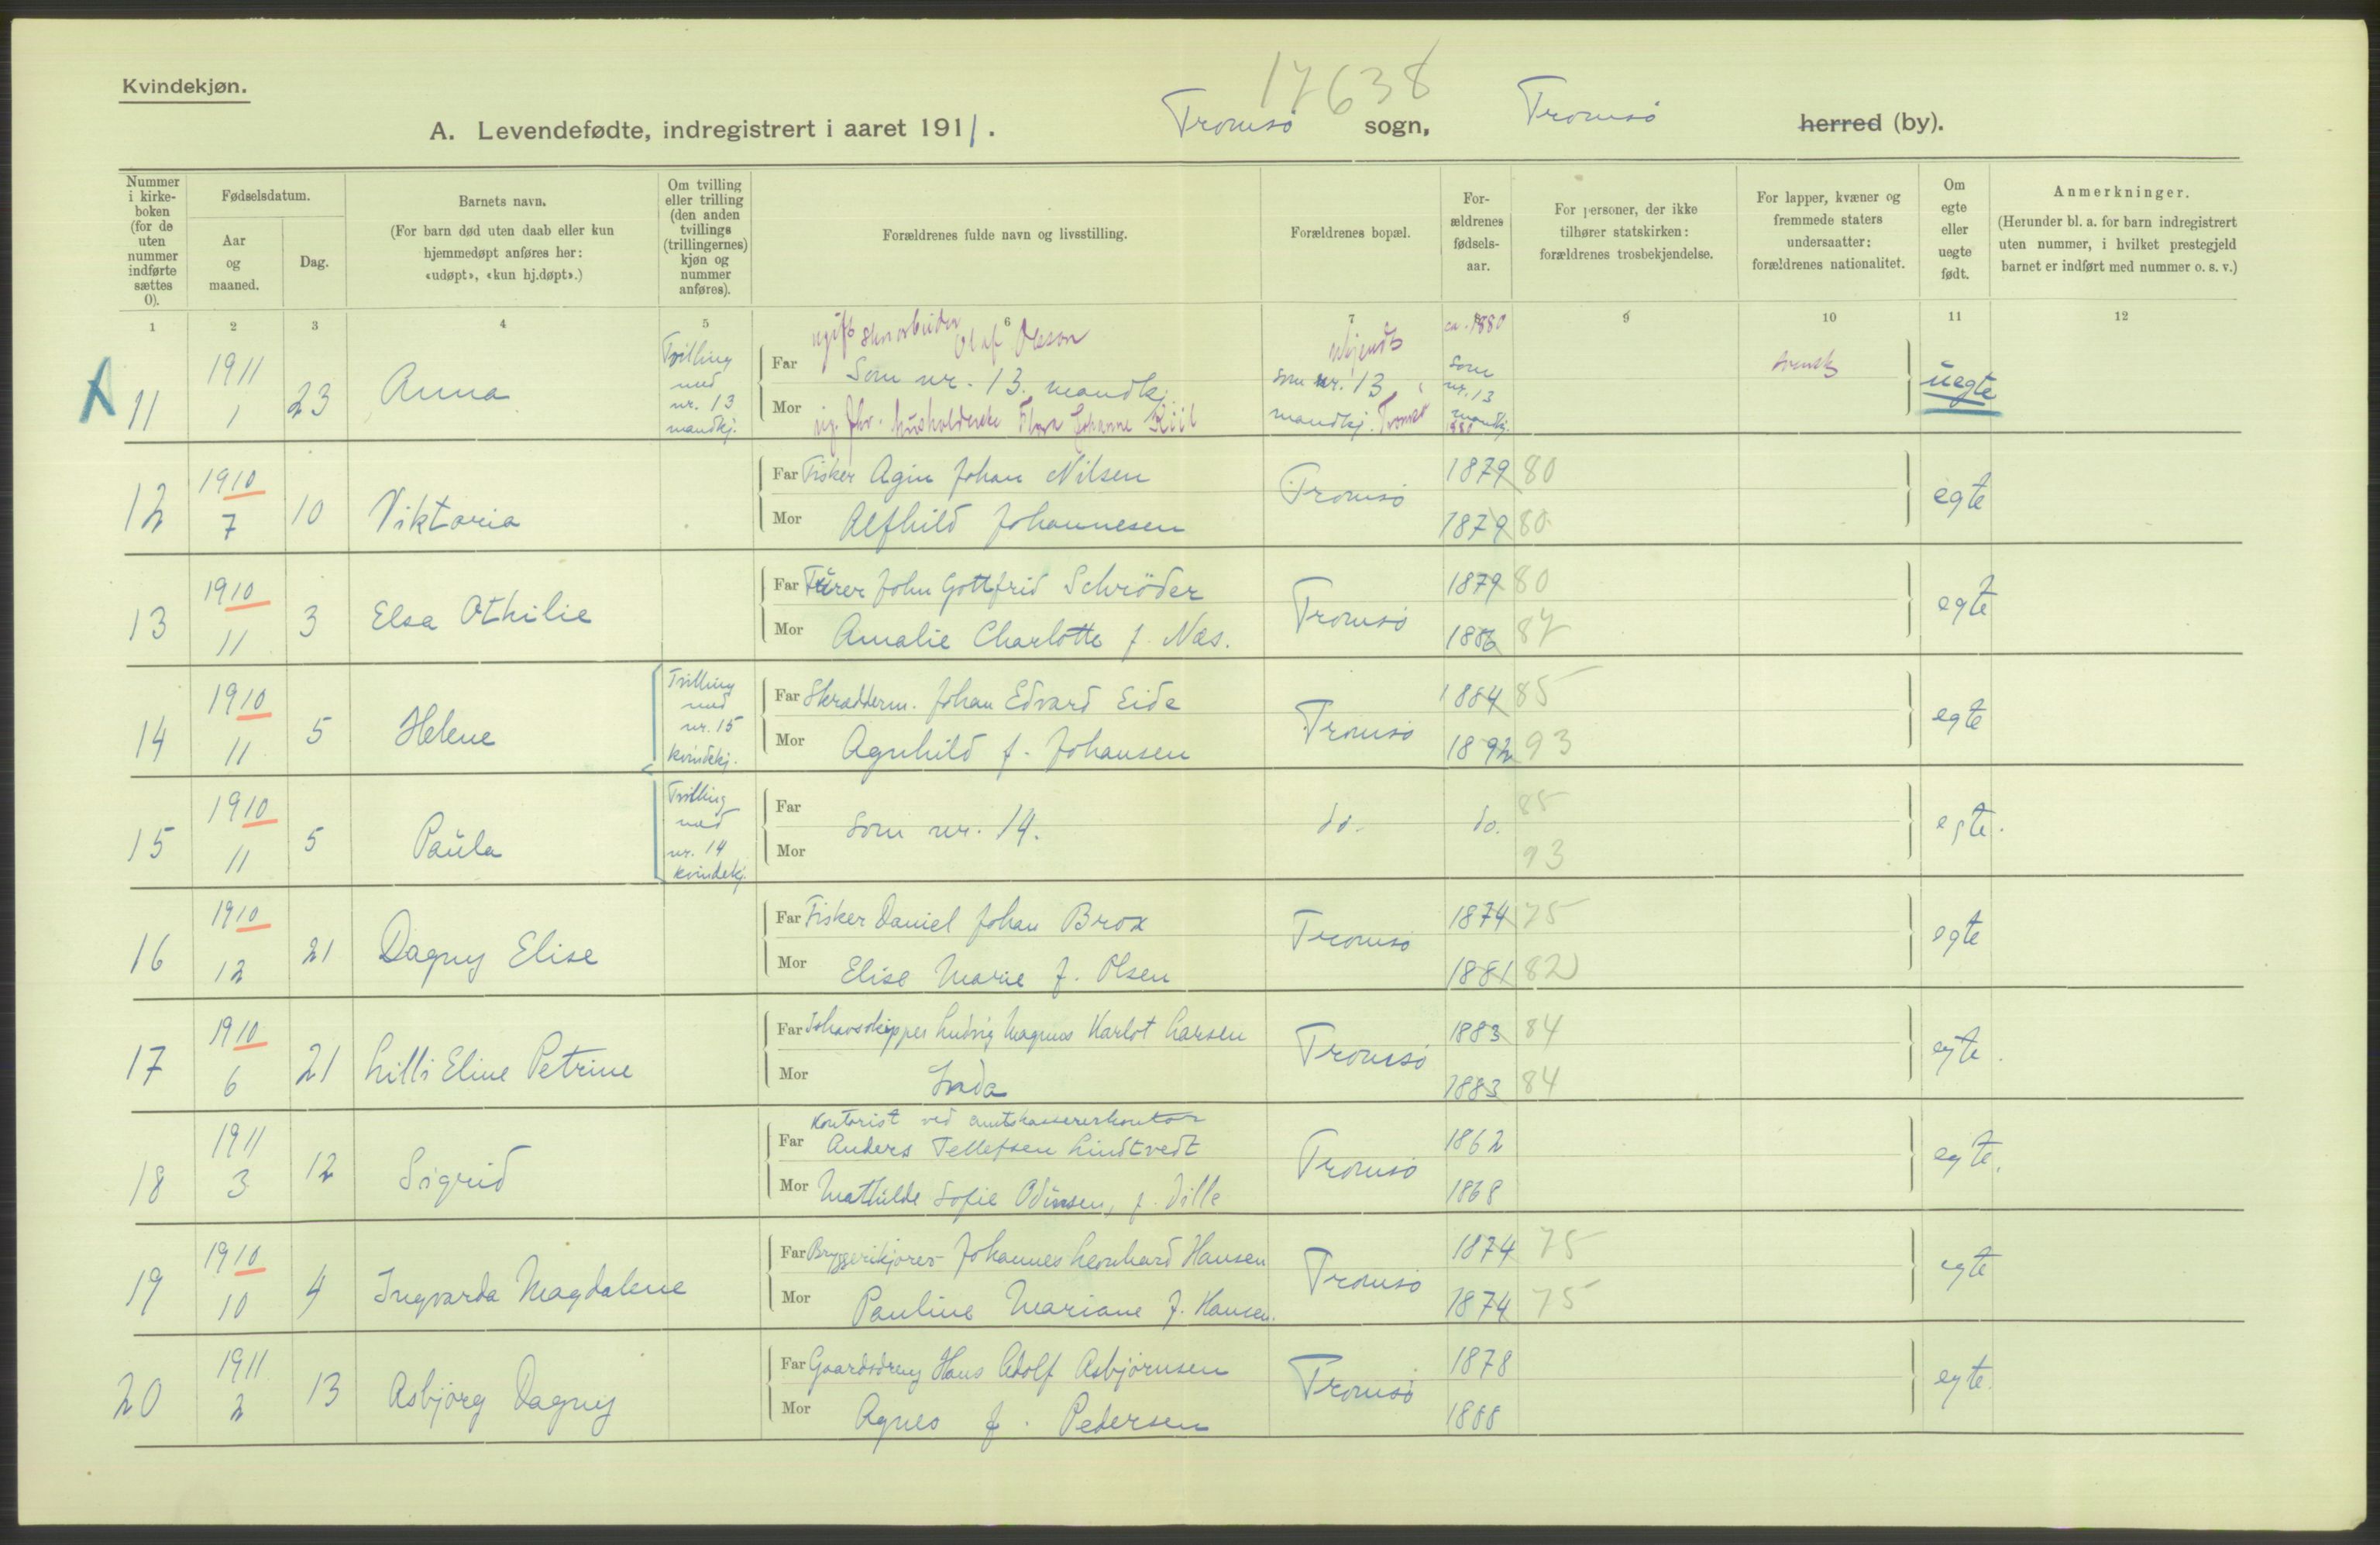 Kvindekjøn.
17638
A. Levendefødte, indregistrert i aaret 1911. Tromsø sogn, Tromsø herred (by).
Nummer i kirkeboken (for de uten nummer indførte sættes 0).
Fødselsdatum.
Aar og maaned.
Dag.
Barnets navn.
(For barn død uten daab eller kun hjemmedøpt anføres her: «udøpt», «kun hj.døpt».)
Om tvilling eller trilling (den anden tvillings (trillingernes) kjøn og nummer anføres).
Forældrenes fulde navn og livsstilling.
Forældrenes bopæl.
Forældrenes fødselsaar.
For personer, der ikke tilhører statskirken: forældrenes trosbekjendelse.
For lapper, kvæner og fremmede staters undersaatter: forældrenes nationalitet.
Om egte eller uegte født.
Anmerkninger.
(Herunder bl. a. for barn indregistrert uten nummer, i hvilket prestegjeld barnet er indført med nummer o. s. v.)
1 2 3 4 5 6 7 8 9 10 11 12
11 1911 1 23 Anna Tvilling med nr. 13 mandkj.
ugift Olaf Olsson ca. 1880
Far Som nr. 13 mandkj. som nr. 13 mandkj. Tromsø som nr. 13 mandkj. svensk uegte
Mor ug. husholderske Flora Johanne Kiil
12 1910 7 10 Viktoria
Far Fisker Agin Johan Nilsen Tromsø 1879 80 egte
Mor Alfhild Johannesen 1879 80
13 1910 11 3 Elsa Othilie
Far Fører John Gottfrid Schröder Tromsø 1879 80 egte
Mor Amalie Charlotte f. Næs. 1886 87
14 1910 11 5 Helene Tvilling med nr. 15 kvindekj.
Far Skrædderm. Johan Edvard Eide Tromsø 1884 85 egte
Mor Agnhild f. Johansen 1892 93
15 1910 11 5 Paula Tvilling med nr. 14 kvindekj.
Far som nr. 14. do. do. 85 egte.
Mor 93
16 1910 12 21 Dagny Elise
Far Fisker Daniel Johan Brox Tromsø 1874 75 egte
Mor Elise Marie f. Olsen 1881 82
17 1910 6 21 Lilli Eline Petrine
Far Ishavsskipper Ludvig Magnus Karlot Larsen Tromsø 1883 84 egte.
Mor 1883 84
18 1911 3 12 Sigrid
Kontorist ved amtskassererkontor
Far Anders Tellefsen Lindtvedt Tromsø 1862 egte.
Mor Mathilde Sofie Odinsen, f. Dille 1868
19 1910 10 4 Ingvarda Magdalene
Far Bryggerikjører Johannes Leonhard Hansen Tromsø 1874 75 egte
Mor Pauline Mariane f. Hansen. 1874 75
20 1911 2 13 Asbjørg Dagny
Far Gaardsdreng Hans Adolf Asbjørnsen Tromsø 1878 egte.
Mor Agnes f. Pedersen 1888